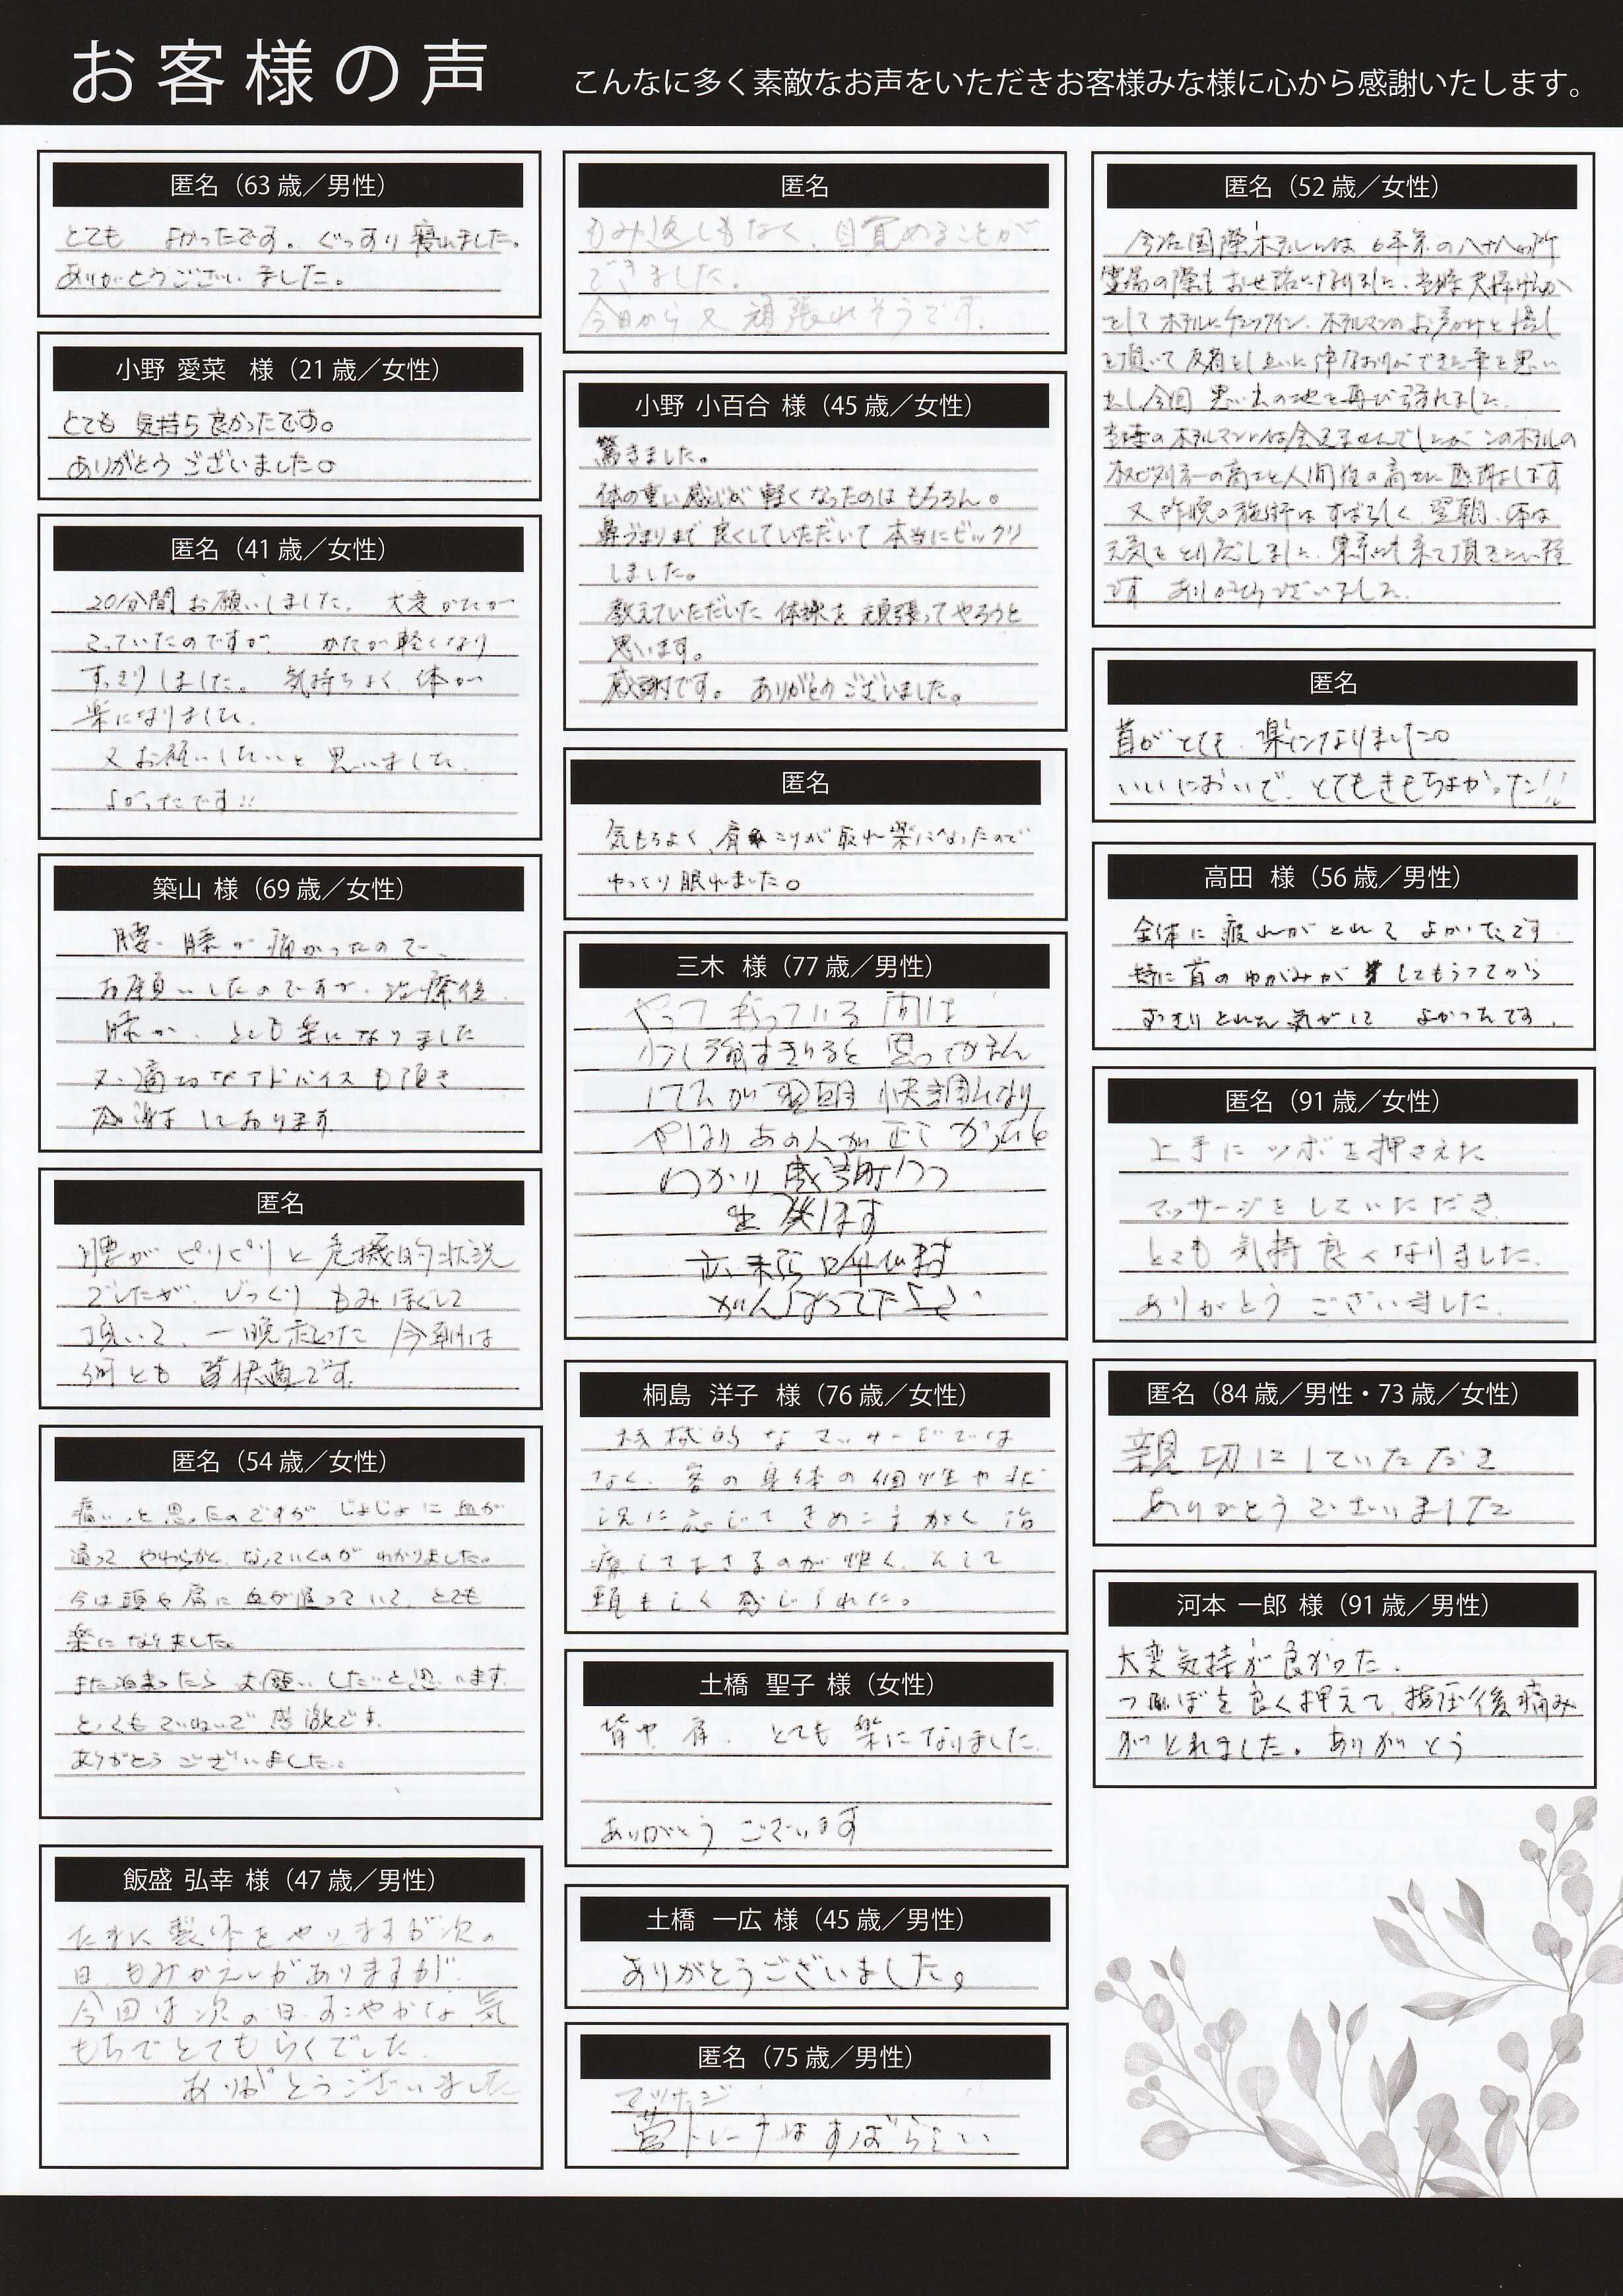 お客様の声
こんなに多く素敵なお声をいただきお客様みな様に心から感謝いたします。
匿名（63歳／男性）
とても よかったです。ぐっすり寝れました。
ありがとうございました。
小野 愛菜 様（21歳／女性）
とても 気持ち良かったです。
ありがとうございました。
匿名（41歳／女性）
20分間お願いしました。大変かたが
こっていたのですが、 かたが軽くなり
すっきりしました。気持ちよく 体が
楽になりました。
又お願いしたいと思いました。
よかったです!!
築山 様（69歳／女性）
腰、膝が痛かったので、
お願いしたのですが、治療後、
膝が、とても楽になりました
又、適切なアドバイスも頂き
感謝しております
匿名
腰がピリピリと危機的状況
でしたが、じっくり もみほぐして
頂いて、一晩たった 今朝は
何とも 皆快適です。
匿名（54歳／女性）
痛いっと思ったのですが じょじょに血が
通って やわらかく なっていくのが わかりました。
今は頭や肩に血が通っていて、とても
楽になりました。
また泊まったら お願いしたいと思います。
とってもていねいで 感激です。
ありがとうございました。
飯盛 弘幸 様（47歳／男性）
たまに製体をやりますが次の
日、もみかえしがありますが、
今回は次の日、すこやかな気
もちでとてもらくでした。
ありがとうございました
匿名
もみ返しもなく、目覚めることが
できました。
今日から又 頑張れそうです。
小野 小百合 様（45歳／女性）
驚きました。
体の重い感じが 軽くなったのは もちろん。
鼻づまりまで 良くしていただいて 本当にビックリ
しました。
教えていただいた 体操を 頑張ってやろうと
思います。
感謝です。ありがとうございました。
匿名
気もちよく、肩こりが取れ楽になったので
ゆっくり眠れました。
三木 様（77歳／男性）
やって 貰っている 間は
少し強すぎると 思ってかまん
してたが翌朝 快調になり
やはり あの人が正しかったと
わかり 感謝しつつ
がんばって下さい。
桐島 洋子 様（76歳／女性）
機械的なマッサージでは
なく、客の身体の個性や状
況に応じてきめこまかく治
療して下さるのが快く、そして
頼もしく感じられた。
土橋 聖子 様（女性）
背中 肩、 とても 楽になりました。
ありがとう ございます
土橋 一広 様（45歳／男性）
ありがとうございました。
匿名（75歳／男性）
マッサージ
トレーナはすばらしい
匿名（52歳／女性）
今治国際ホテルには 6年前の八十八ヶ所
霊場の際もお世話になりました。当時 夫婦げんか
をして ホテルにチェックイン、ホテルマンのお声がけと優し
を頂いて 反省とし 仲なおりができた事を思い
出し今回 思い出の地を再び訪れました。
当時のホテルマンには会えませんでしたが このホテルの
ホスピタリティーの高さと人間性の高さに 感謝します
又 昨晩の施術は すばらしく 翌朝、体は
元気をとり戻しました。東京にも来て頂きたい程
です ありがとうございました。
匿名
首がとても 楽になりました。
いいにおいで、とてもきもちよかった!!
高田 様（56歳／男性）
全体に疲れがとれて よかったです。
特に首のゆがみが してもらってから
すっきりとれた気がして よかったです。
匿名（91歳／女性）
上手にツボを押さえた
マッサージを していただき、
とても 気持良くなりました。
ありがとう ございました。
匿名（84歳／男性・73歳／女性）
親切にしていただき
ありがとうございました
河本 一郎 様（91歳／男性）
大変気持が良かった。
つぼを良く押えて、指圧後痛み
がとれました。ありがとう